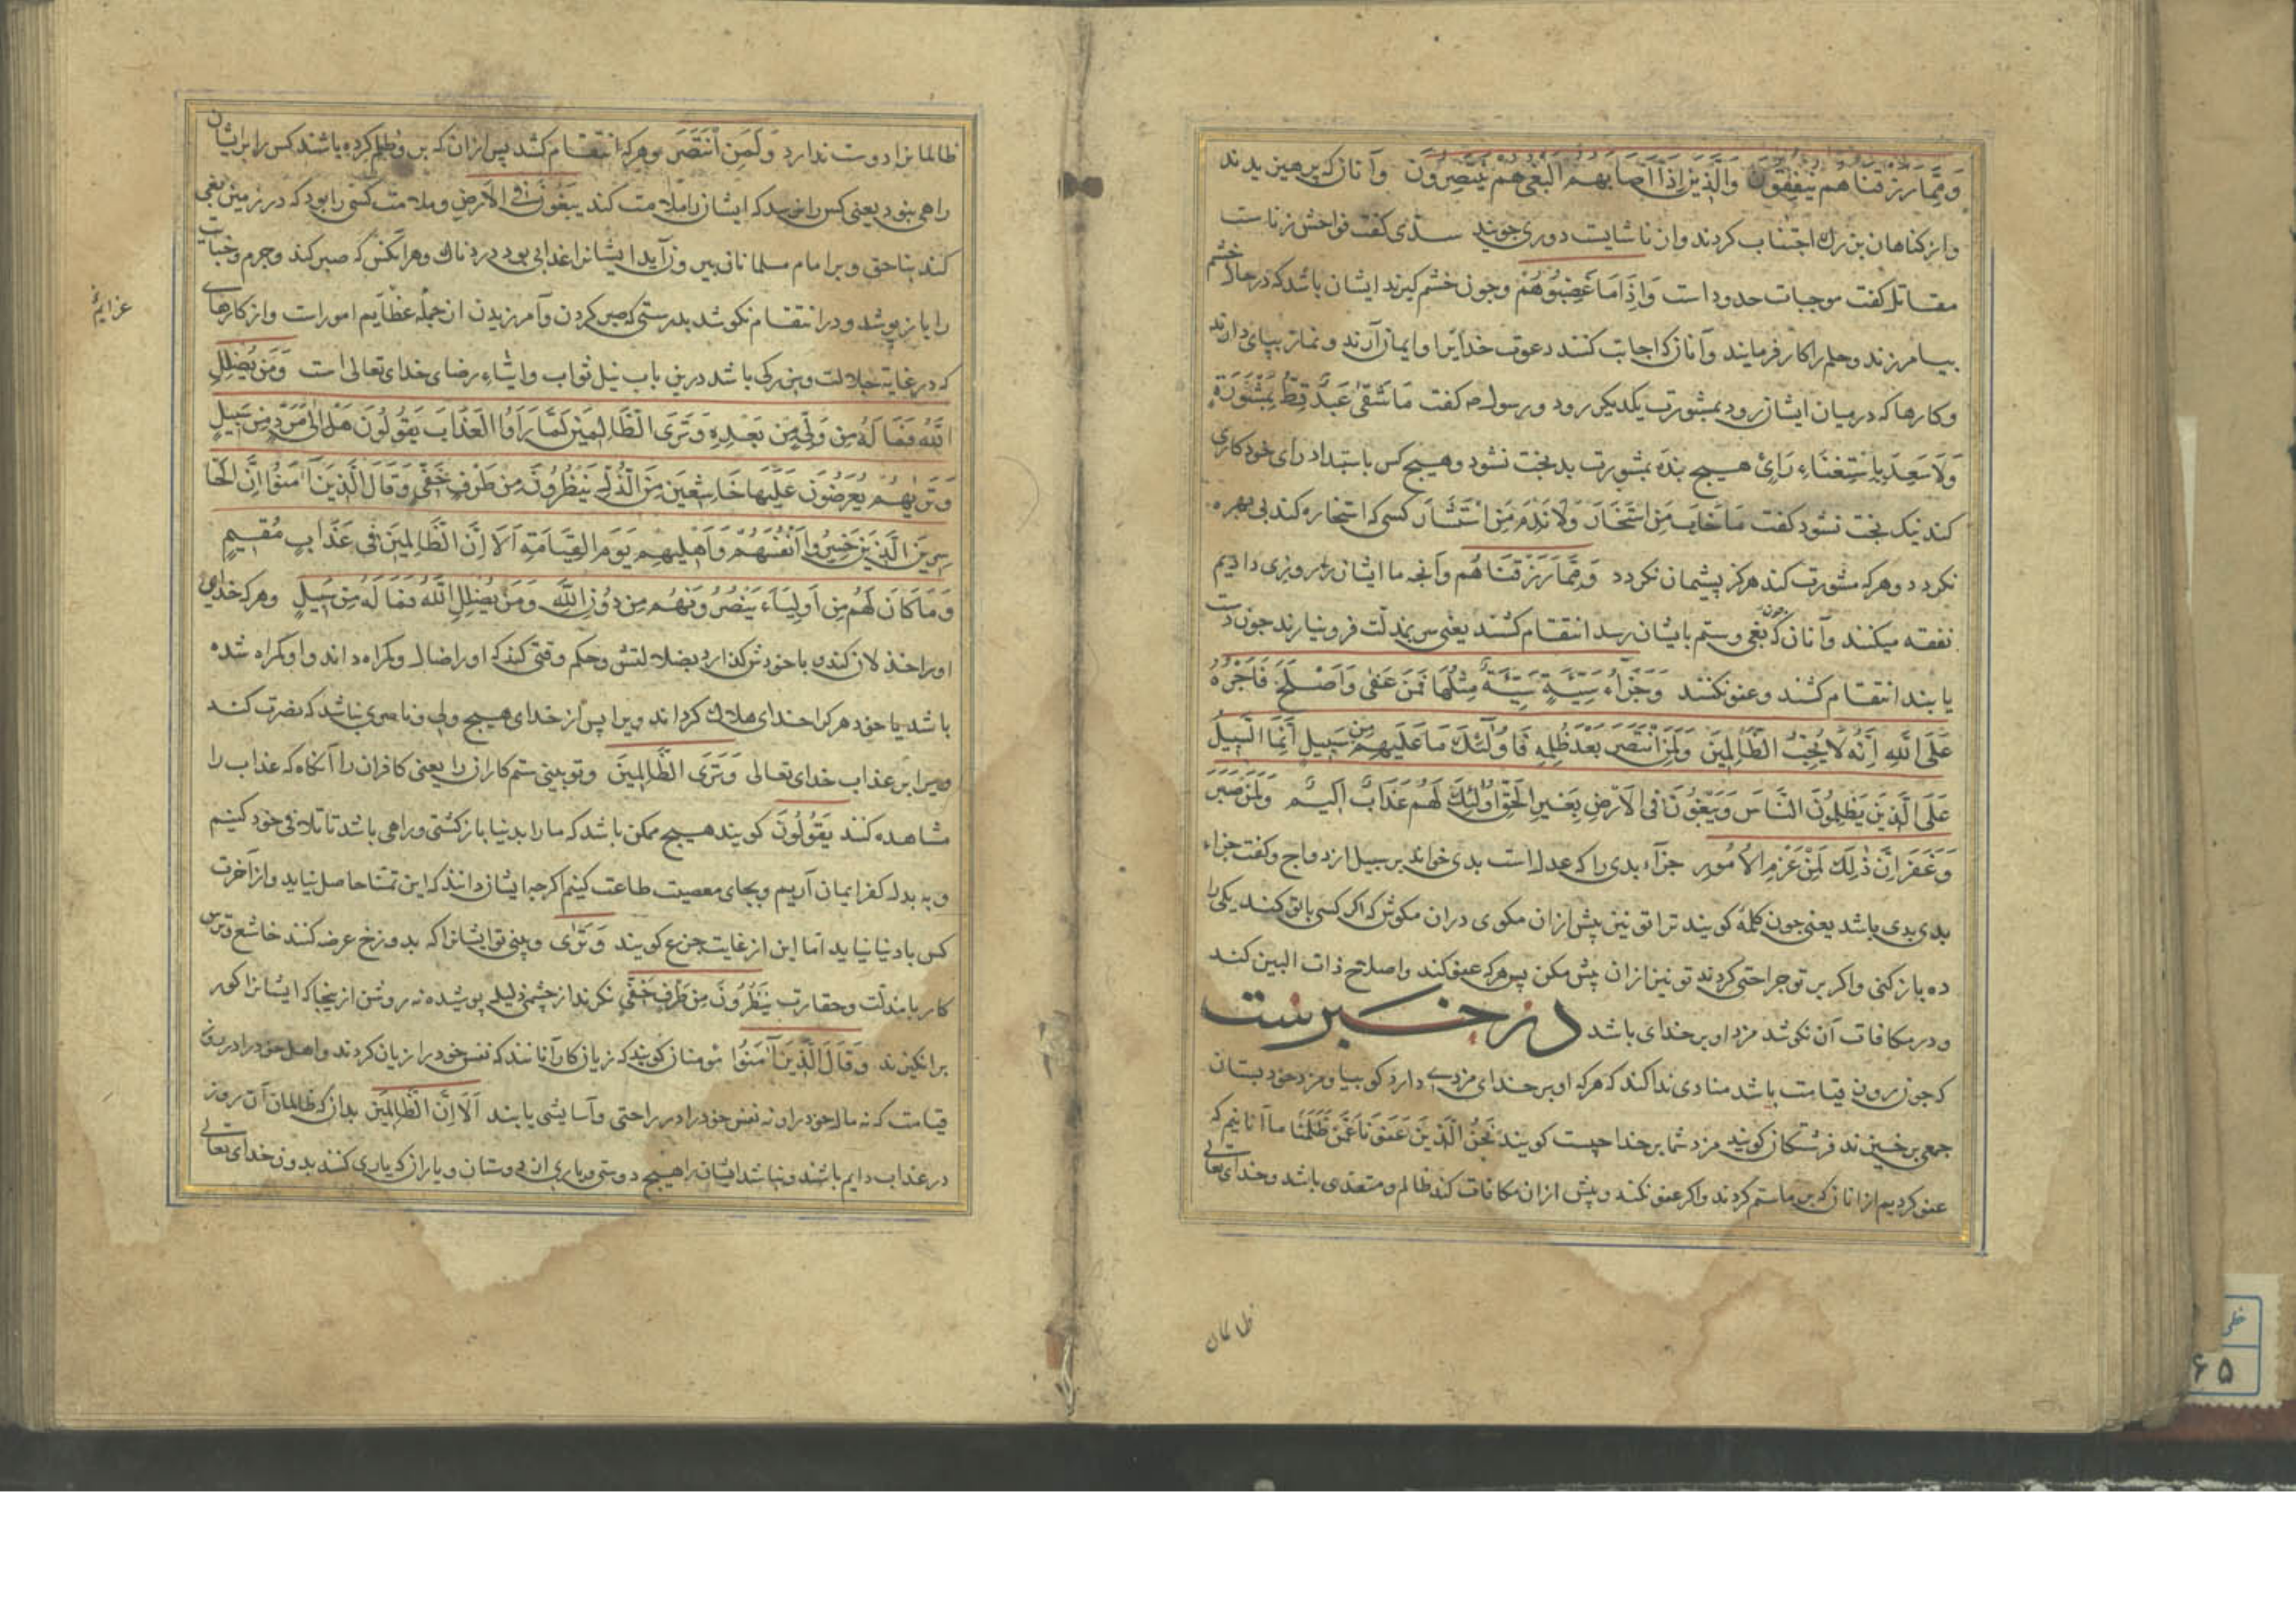 وَمِمَّا رَزَقْنَاهُمْ يُنْفِقُونَ وَالَّذِينَ إِذَا أَصَابَهُمُ الْبَغْيُ هُمْ يَنْتَصِرُونَ وآنان که پرهیزیدند
واز کناهان بزرك اجتناب کردند وازناشایست دوری جویند سدی کفت فواحش زناست
مقاتل کفت موجبات حدود است وَإِذَا مَا غَضِبُوا هُمْ وجون خشم کیرند ایشان باشد که در حال خشم
بیامرزند وحلم را کار فرمایند وآنان که اجابت کنند دعوت خدایرا وایمان آرند ونماز بپای دارند
وکارها که درمیان ایشان رود بمشورت یکدیکر رود ورسول صه کفت مَا شَقَىٰ عَبْدٌ قَطُّ بِمَشْوَرَةٍ
وَلَا سَعِدَ بِاسْتِغْنَاءِ رَأْيٍ هیچ بنده بمشورت بدبخت نشود وهیچ کس باستبداد رای خود کاری
کند نیک بخت نشود کفت مَا خَابَ مَنِ اسْتَخَارَ وَلَا نَدِمَ مَنِ اسْتَشَارَ کسی که استخاره کند بی بهره
نکردد وهرکه مشورت کند هرکز پشیمان نکردد وَمِمَّا رَزَقْنَاهُمْ وآنجه ما ایشان را روزی دادیم
نفقه میکنند وآنان که جون بغی وستم بایشان رسد انتقام کشند یعنی سر بمذلت فرونیارند جون دست
یابند انتقام کشند وعفو نکنند وَجَزَاءُ سَيِّئَةٍ سَيِّئَةٌ مِثْلُهَا فَمَنْ عَفَىٰ وَأَصْلَحَ فَأَجْرُهُ
عَلَى اللَّهِ إِنَّهُ لَا يُحِبُّ الظَّالِمِينَ وَلَمَنِ انْتَصَرَ بَعْدَ ظُلْمِهِ فَأُولَٰئِكَ مَا عَلَيْهِمْ مِنْ سَبِيلٍ إِنَّمَا السَّبِيلُ
عَلَى الَّذِينَ يَظْلِمُونَ النَّاسَ وَيَبْغُونَ فِي الْأَرْضِ بِغَيْرِ الْحَقِّ أُولَٰئِكَ لَهُمْ عَذَابٌ أَلِيمٌ وَلَمَنْ صَبَرَ
وَغَفَرَ إِنَّ ذَٰلِكَ لَمِنْ عَزْمِ الْأُمُورِ جزآء بدی را که عدل است بدی خواند بر سبیل ازدواج وکفت جزاء
بدی بدی باشد یعنی جون کلمهٔ کویند ترا تو نیز پیش ازان مکوی دران مکوش که اکر کسی با تو کند یکی را
ده باز کنی واکر بر تو جراحتی کردند تو نیز ازان پیش مکن پس هرکه عفو کند واصلاح ذات البین کند
ودر مکافات آن نکوشد مزد او بر خدای باشد در خبرست
که جون روز قیامت باشد منادی ندا کند که هرکه او بر خدای مزدی دارد کو بیا ومزد خود بستان
جمعی برخیزند فرشتکان کویند مزد شما بر خدا چیست کویند نَحْنُ الَّذِينَ عَفَوْنَا عَمَّنْ ظَلَمَنَا ما آنانیم که
عفو کردیم از انان که بر ما ستم کردند واکر عفو نکند وپیش ازان مکافات کند ظالم ومتعدی باشد وخدای تعالی
ظالمان
ظالمانرا دوست ندارد وَلَمَنِ انْتَصَرَ وهرکه انتقام کشد پس ازان که بر وظلم کرده باشند کس را بر ایشان
راهی نبود یعنی کس را نرسد که ایشان را ملامت کند يَبْغُونَ فِي الْأَرْضِ وملامت کسی را بود که در زمین بغی
کند بناحق وبر امام مسلمانان بیرون آید ایشانرا عذابی بود دردناك وهرآنکس که صبر کند وجرم وخیانت
را باز پوشد ودر انتقام نکوشد بدرستی که صبر کردن وآمرزیدن ان جمله عظایم امورات واز کارهای
که در غایة جلالت وبزرکی باشد درین باب نیل ثواب وایثاء رضای خدای تعالی است وَمَنْ يُضْلِلِ
اللَّهُ فَمَا لَهُ مِنْ وَلِيٍّ مِنْ بَعْدِهِ وَتَرَى الظَّالِمِينَ لَمَّا رَأَوُا الْعَذَابَ يَقُولُونَ هَلْ إِلَىٰ مَرَدٍّ مِنْ سَبِيلٍ
وَتَرَاهُمْ يُعْرَضُونَ عَلَيْهَا خَاشِعِينَ مِنَ الذُّلِّ يَنْظُرُونَ مِنْ طَرْفٍ خَفِيٍّ وَقَالَ الَّذِينَ آمَنُوا إِنَّ الْخَا
سِرِينَ الَّذِينَ خَسِرُوا أَنْفُسَهُمْ وَأَهْلِيهِمْ يَوْمَ الْقِيَامَةِ أَلَا إِنَّ الظَّالِمِينَ فِي عَذَابٍ مُقِيمٍ
وَمَا كَانَ لَهُمْ مِنْ أَوْلِيَاءَ يَنْصُرُونَهُمْ مِنْ دُونِ اللَّهِ وَمَنْ يُضْلِلِ اللَّهُ فَمَا لَهُ مِنْ سَبِيلٍ وهرکه خدای
اورا خذلان کند یا خودش کذارد بضلالتش وحکم وقتی کند که اورا ضال وکمراه داند واوکمراه شده
باشد یا خود هرکرا خدای هلاك کرداند ویرا پس از خدای هیچ ولی وناصری نباشد که نصرت کند
ویرا بر عذاب خدای تعالی وَتَرَى الظَّالِمِينَ وتو بینی ستمکاران را یعنی کافران را آنکاه که عذاب را
مشاهده کنند يَقُولُونَ کویند هیچ ممکن باشد که مارا بدنیا بازکشتی وراهی باشد تا تلافی خود کنیم
وبه بدل کفر ایمان آریم وبجای معصیت طاعت کنیم اکرجه ایشان دانند که این تمنا حاصل نیاید واز آخرت
کس بادنیا نیاید اما این از غایت جزع کویند وَتَرَىٰ وبینی تو ایشانرا که بدوزخ عرضه کنند خاشع وترس
کار با مذلت وحقارت يَنْظُرُونَ مِنْ طَرْفٍ خَفِيٍّ نکرند از چشمی ذلیلی پوشیده نه روشن ازینجا که ایشانرا کور
برانکیزند وَقَالَ الَّذِينَ آمَنُوا مومنان کویند که زیان کار آنانند که نفس خود را زیان کردند واهل خود را در روز
قیامت که نه مال خود را ونه نفس خود را در راحتی وآسایشی یابند أَلَا إِنَّ الظَّالِمِينَ بدان که ظالمان آن روز
در عذاب دایم باشند ونباشد ایشان را هیچ دوستی ویاری ان دوستان ویاران که یاری کنند بدون خدای تعالی
عزایم
۶۵